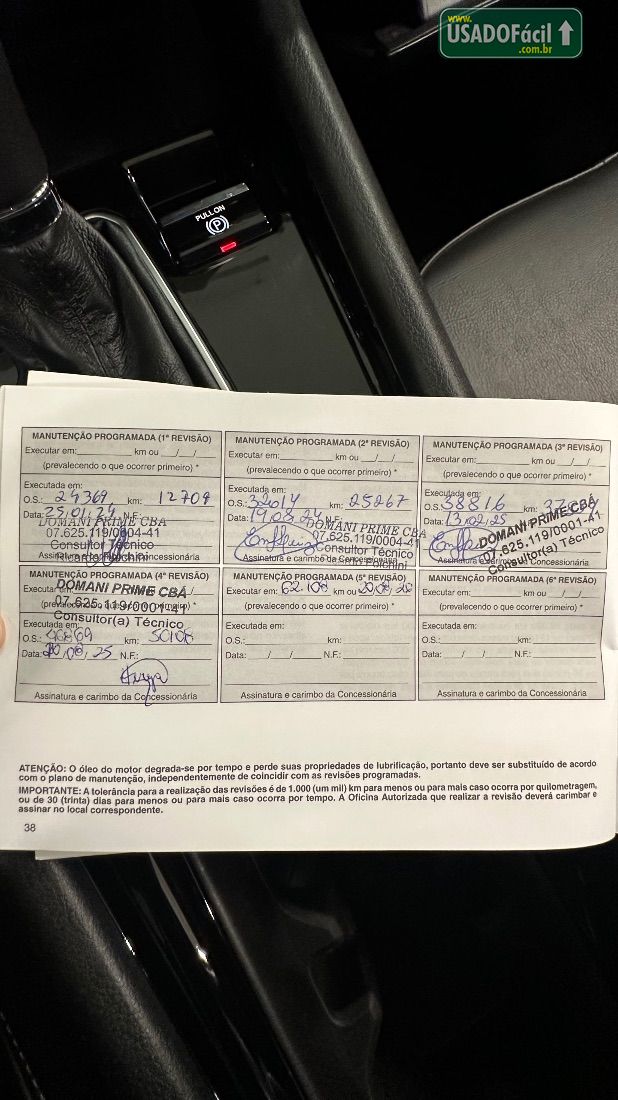 www.
USADOFácil
.com.br
PULL ON
(P)
MANUTENÇÃO PROGRAMADA (1ª REVISÃO)
Executar em: km ou / /
(prevalecendo o que ocorrer primeiro) *
Executada em:
O.S.: 24369 km: 12709
Data: 25,01,24 N.F.
DOMANI PRIME CBA
07.625.119/0004-41
Consultor Técnico
Assinatura e carimbo da Concessionária
MANUTENÇÃO PROGRAMADA (2ª REVISÃO)
Executar em: km ou / /
(prevalecendo o que ocorrer primeiro) *
Executada em:
O.S.: 32014 km: 25267
Data: 19,08,24 N.F.:
DOMANI PRIME CBA
07.625.119/0004-41
Consultor Técnico
Assinatura e carimbo da Concessionária
MANUTENÇÃO PROGRAMADA (3ª REVISÃO)
Executar em: km ou / /
(prevalecendo o que ocorrer primeiro) *
Executada em:
O.S. 38816 km:
Data: 13,02,25
DOMANI PRIME CBA
07.625.119/0001-41
Consultor(a) Técnico
MANUTENÇÃO PROGRAMADA (4ª REVISÃO)
DOMANI PRIME CBA
07.625.119/0001-41
Consultor(a) Técnico
O.S.: 46869 km: 50108
Data: 20,08,25 N.F.:
Assinatura e carimbo da Concessionária
MANUTENÇÃO PROGRAMADA (5ª REVISÃO)
Executar em: 62.108 km ou
(prevalecendo o que ocorrer primeiro) *
Executada em:
O.S.: km:
Data: / / N.F.:
Assinatura e carimbo da Concessionária
MANUTENÇÃO PROGRAMADA (6ª REVISÃO)
Executar em: km ou / /
(prevalecendo o que ocorrer primeiro) *
Executada em:
O.S.: km:
Data: / / N.F.:
Assinatura e carimbo da Concessionária
ATENÇÃO: O óleo do motor degrada-se por tempo e perde suas propriedades de lubrificação, portanto deve ser substituído de acordo
com o plano de manutenção, independentemente de coincidir com as revisões programadas.
IMPORTANTE: A tolerância para a realização das revisões é de 1.000 (um mil) km para menos ou para mais caso ocorra por quilometragem,
ou de 30 (trinta) dias para menos ou para mais caso ocorra por tempo. A Oficina Autorizada que realizar a revisão deverá carimbar e
assinar no local correspondente.
38